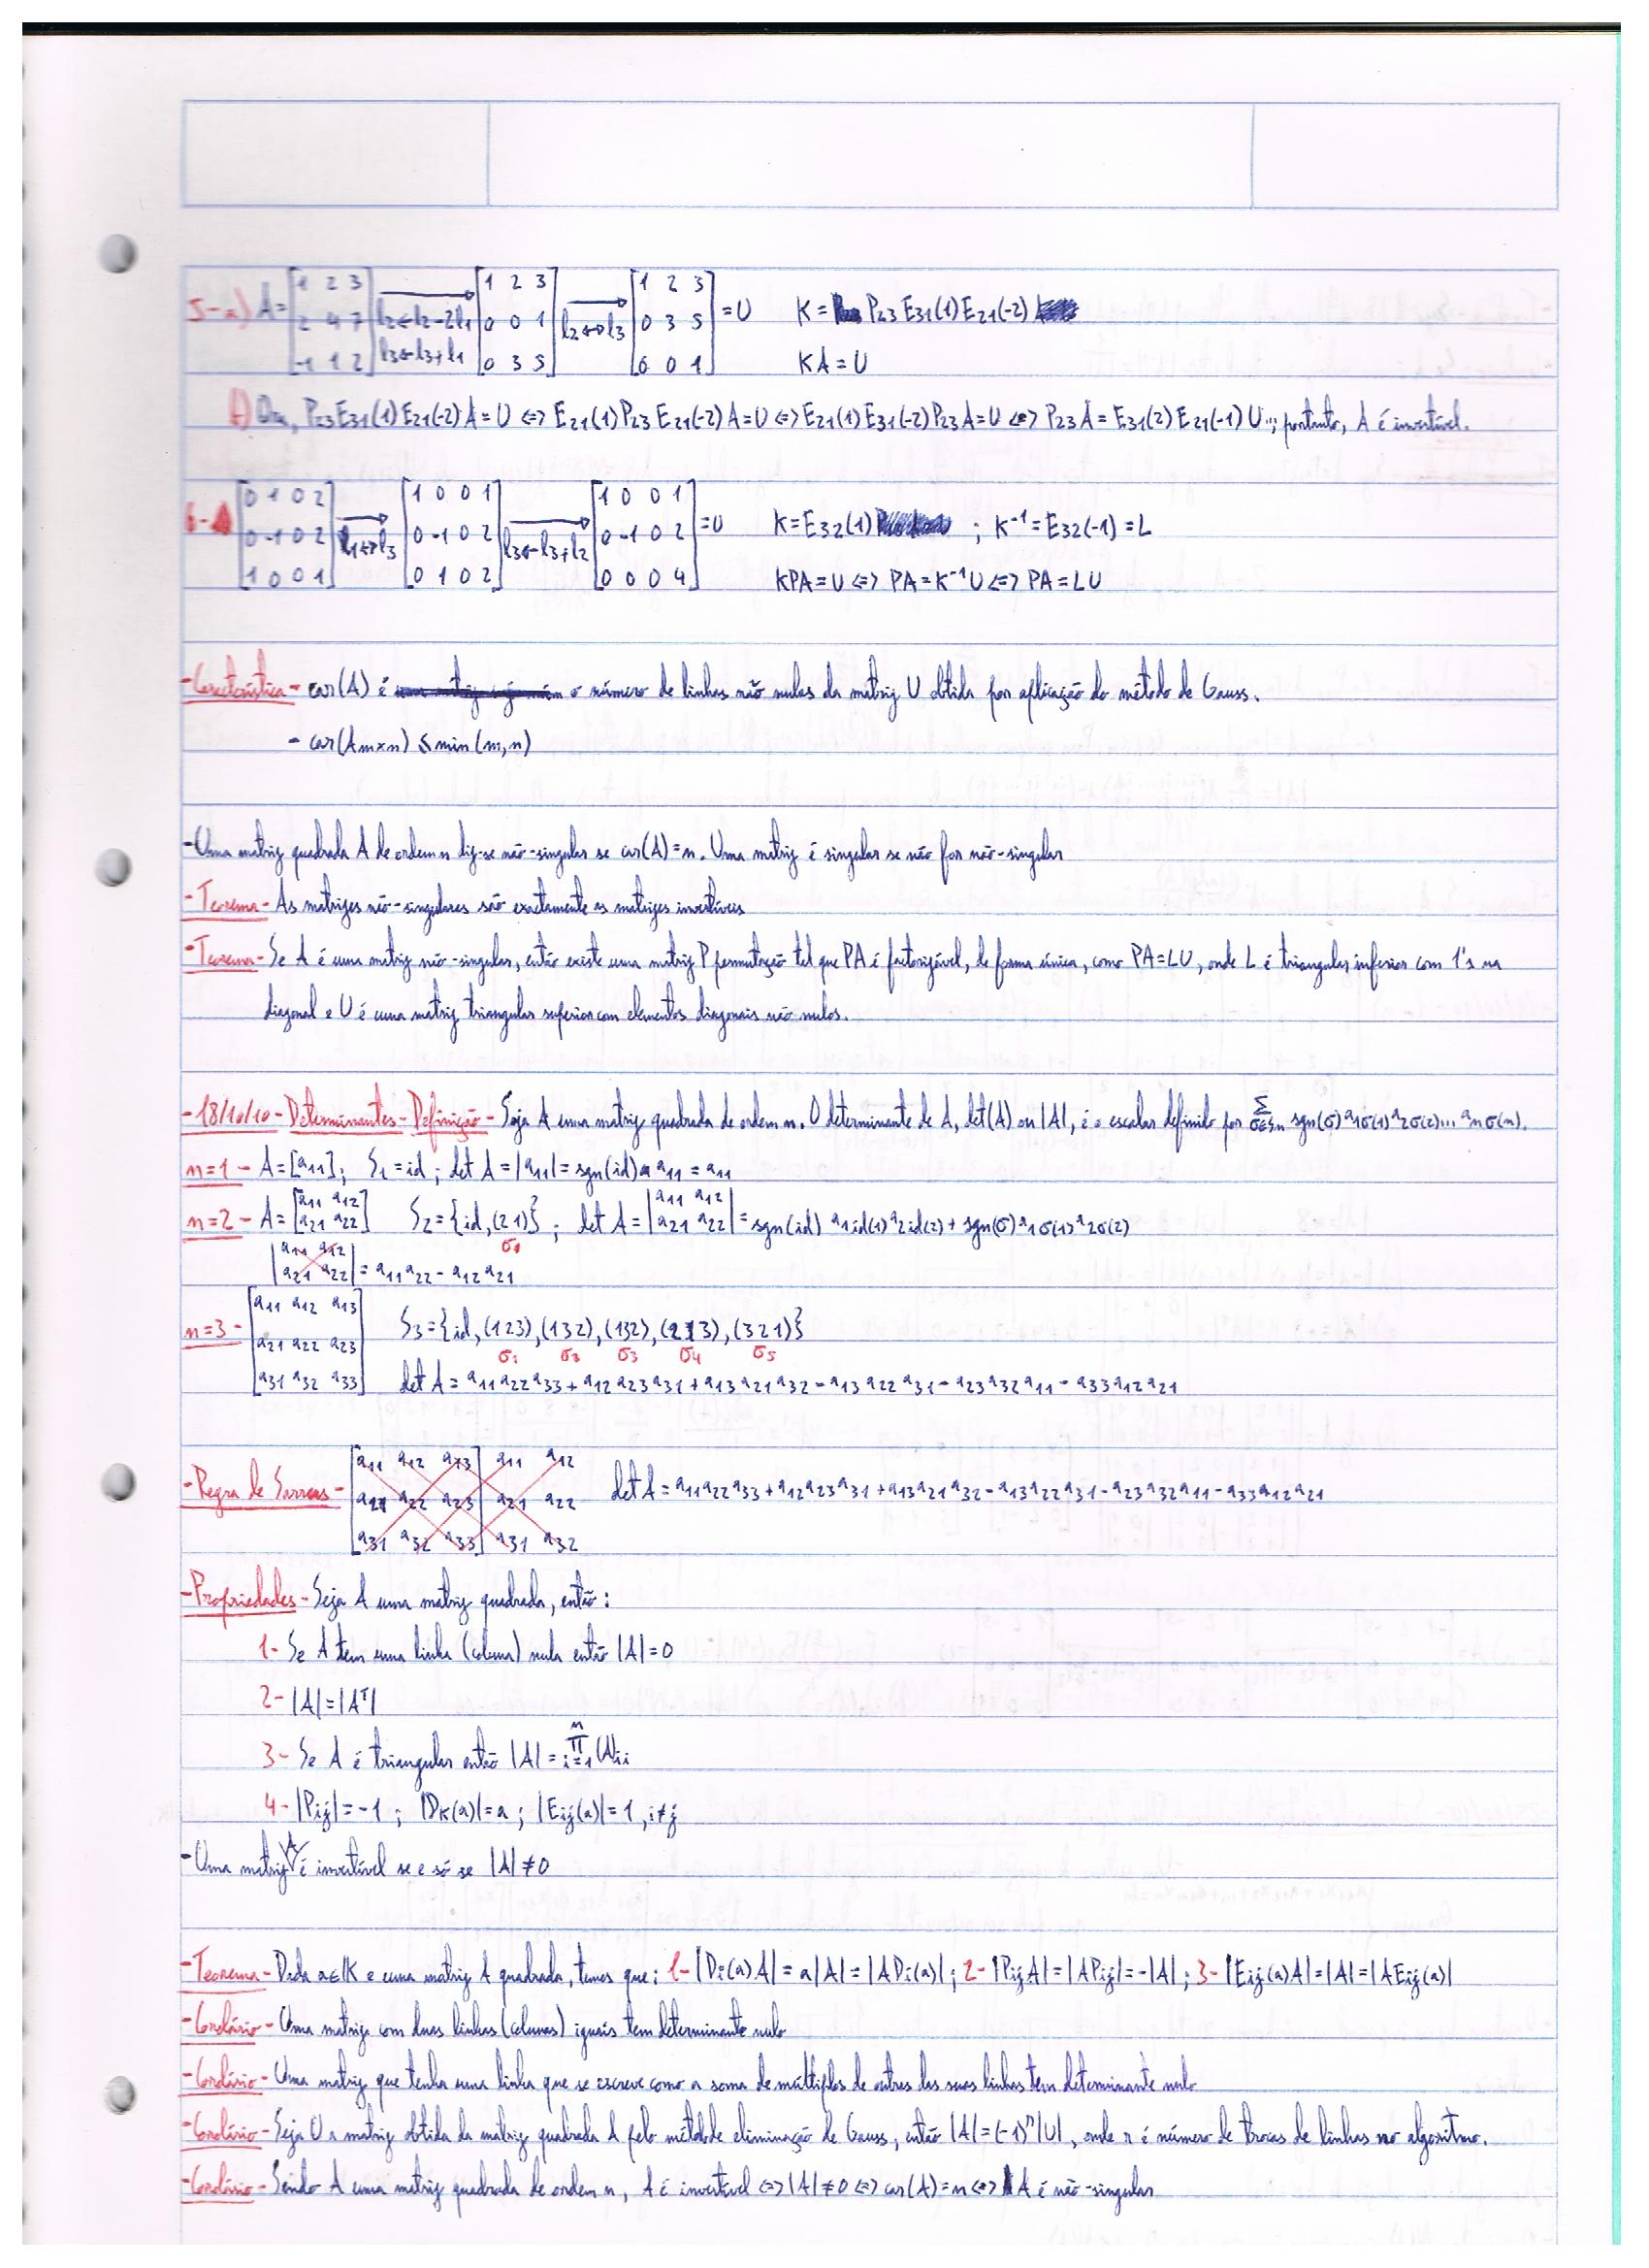 5-a) A = [1 2 3; 2 4 7; -1 1 2] → (l2←l2-2l1, l3←l3+l1) [1 2 3; 0 0 1; 0 3 5] → (l2↔l3) [1 2 3; 0 3 5; 0 0 1] = U   K = P23 E31(1) E21(-2)
KA = U
Ora, P23 E31(1) E21(-2) A = U ⇔ E21(1) P23 E21(-2) A = U ⇔ E21(1) E31(-2) P23 A = U ⇔ P23 A = E31(2) E21(-1) U; portanto, A é invertível.
6- [0 1 0 2; 0 -1 0 2; 1 0 0 1] → (l1↔l3) [1 0 0 1; 0 -1 0 2; 0 1 0 2] → (l3←l3+l2) [1 0 0 1; 0 -1 0 2; 0 0 0 4] = U   K = E32(1) ; K⁻¹ = E32(-1) = L
KPA = U ⇔ PA = K⁻¹U ⇔ PA = LU
-Característica- car(A) é o número de linhas não nulas da matriz U obtida por aplicação do método de Gauss.
- car(Am×n) ≤ min(m,n)
-Uma matriz quadrada A de ordem n diz-se não-singular se car(A)=n. Uma matriz é singular se não for não-singular
-Teorema- As matrizes não-singulares são exactamente as matrizes invertíveis
-Teorema- Se A é uma matriz não-singular, então existe uma matriz P permutação tal que PA é factorizável, de forma única, como PA=LU, onde L é triangular inferior com 1's na
diagonal e U é uma matriz triangular superior com elementos diagonais não nulos.
-18/10/10-Determinantes-Definição- Seja A uma matriz quadrada de ordem n. O determinante de A, det(A) ou |A|, é o escalar definido por Σσ∈Sn sgn(σ) a1σ(1) a2σ(2)... anσ(n).
n=1 - A=[a11]; S1=id; det A = |a11| = sgn(id) a11 = a11
n=2 - A = [a11 a12; a21 a22]   S2={id,(21)}; det A = |a11 a12; a21 a22| = sgn(id) a1id(1) a2id(2) + sgn(σ) a1σ(1) a2σ(2)
σ1
|a11 a12; a21 a22| = a11a22 - a12a21
n=3 - [a11 a12 a13; a21 a22 a23; a31 a32 a33]   S3={id,(123),(132),(132),(213),(321)}
σ1 σ2 σ3 σ4 σ5
det A = a11a22a33 + a12a23a31 + a13a21a32 - a13a22a31 - a23a32a11 - a33a12a21
-Regra de Sarrus- [a11 a12 a13; a21 a22 a23; a31 a32 a33] a11 a12; a21 a22; a31 a32   det A = a11a22a33 + a12a23a31 + a13a21a32 - a13a22a31 - a23a32a11 - a33a12a21
-Propriedades- Seja A uma matriz quadrada, então:
1- Se A tem uma linha (coluna) nula então |A|=0
2- |A|=|Aᵀ|
3- Se A é triangular então |A| = ∏ i=1 n (A)ii
4- |Pij|=-1; |Dk(a)|=a; |Eij(a)|=1, i≠j
-Uma matriz A é invertível se e só se |A|≠0
-Teorema- Dada a∈K e uma matriz A quadrada, temos que: 1- |Di(a)A| = a|A| = |ADi(a)|; 2- |PijA| = |APij| = -|A|; 3- |Eij(a)A| = |A| = |AEij(a)|
-Corolário- Uma matriz com duas linhas (colunas) iguais tem determinante nulo
-Corolário- Uma matriz que tenha uma linha que se escreve como a soma de múltiplos de outras das suas linhas tem determinante nulo
-Corolário- Seja U a matriz obtida da matriz quadrada A pelo método de eliminação de Gauss, então |A|=(-1)ʳ|U|, onde r é número de trocas de linhas no algoritmo.
-Corolário- Sendo A uma matriz quadrada de ordem n, A é invertível ⇔ |A|≠0 ⇔ car(A)=n ⇔ A é não-singular